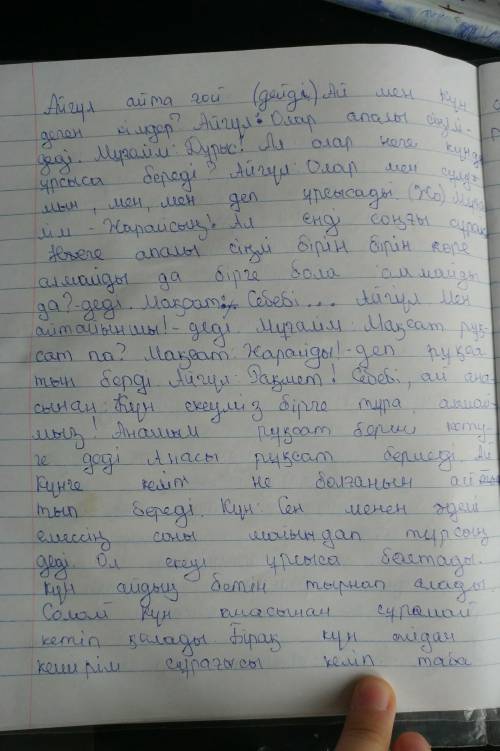 Айгүл айта ғой (дейді) Ай мен күн
деген кімдер? Айгүл: Олар апалы сіңлі-
деді. Мұғалім: Дұрыс! Ал олар неге күнде
ұрсыса береді? Айгүл: Олар мен сұлу-
мын, мен, мен деп ұрсысады. (Жо) Мұға-
лім - Жарайсың! Ал енді соңғы сұрақ
Неге апалы сіңлі бірін бірін көре
алмайды да бірге бола алмайды
да? - деді. Мақсат: Себебі... Айгүл Мен
айтайыншы! - деді. Мұғалім: Мақсат рұқ-
сат па? Мақсат: Жарайды! - деп рұқса
тын берді. Айгүл: Рақмет! Себебі, ай ана-
сынан: Күн екеуміз бірге тұра, алмай-
мыз! Анашым рұқсат берші кету-
ге деді Анасы рұқсат бермеді. Ай
Күнге келіп не болғанын айтып
береді. Күн: Сен менен әдемі
емессің соны мойындап тұрсың
деді. Ол екеуі ұрсыса бастады.
Күн айдың бетін тырнап алады
Солай күн анасынан сұрамай
кетіп қалады. Бірақ күн айдан
кешірім сұрағысы келіп таба